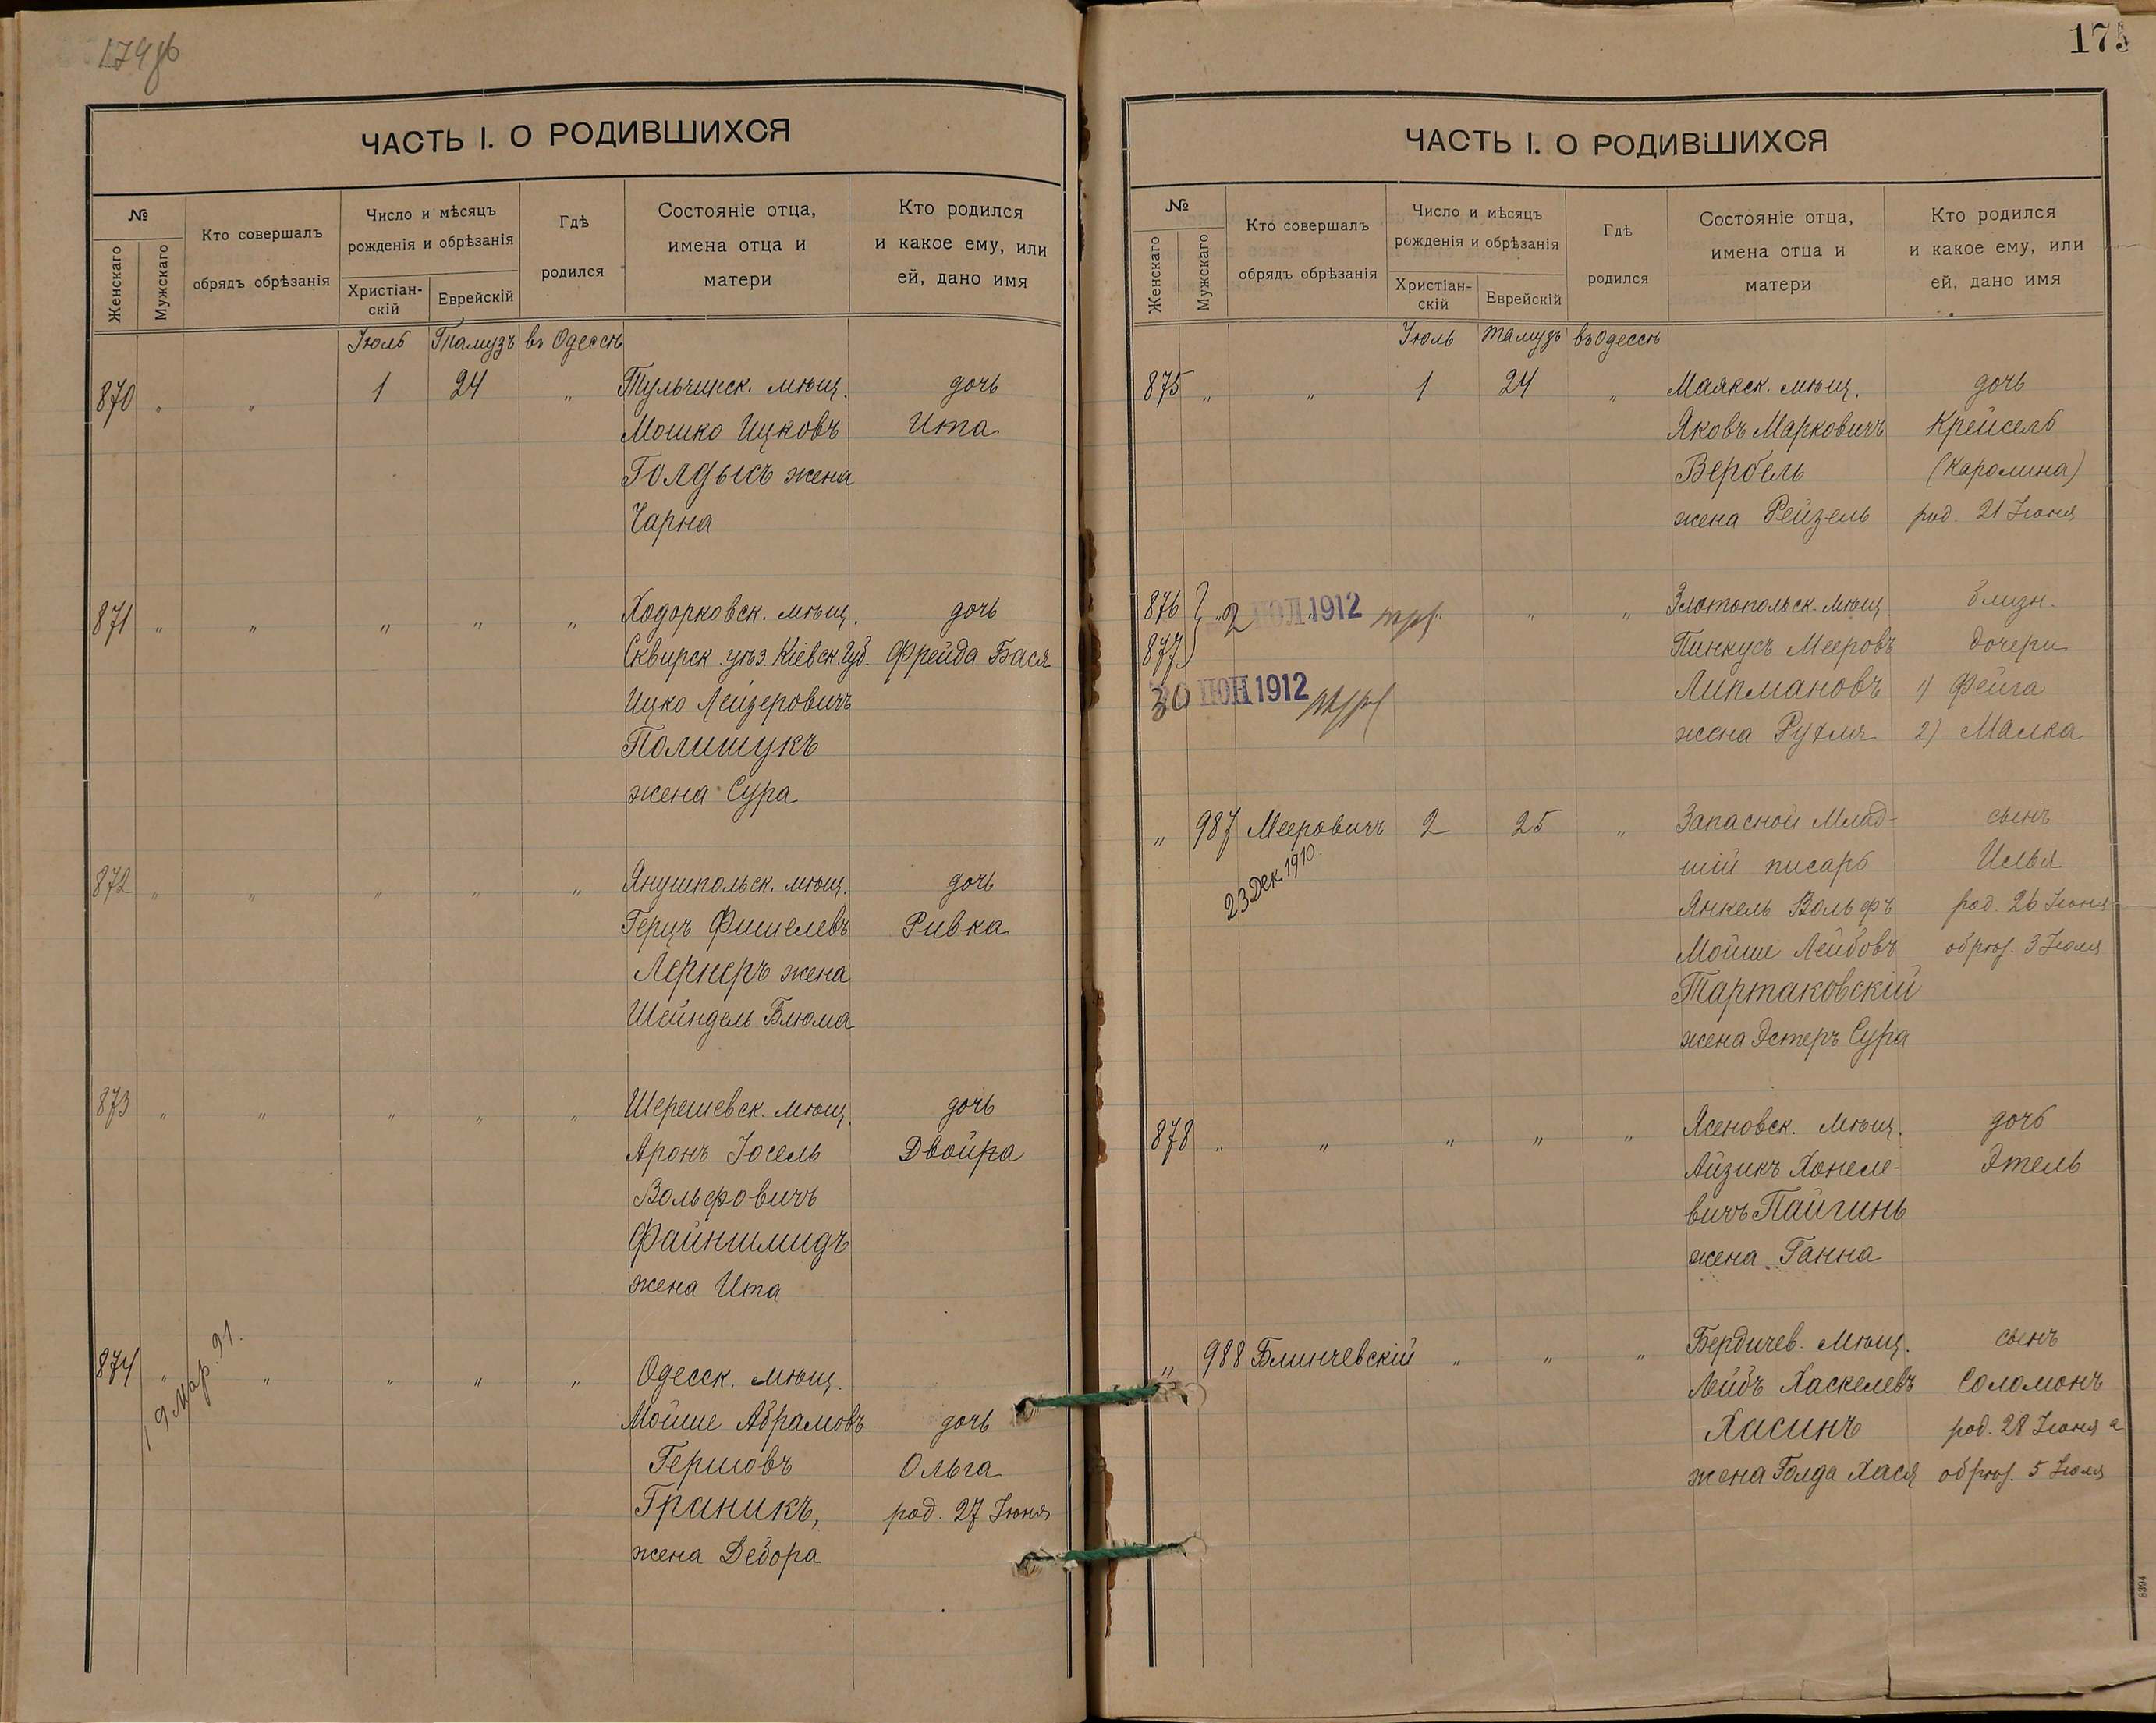 174об
ЧАСТЬ I. О РОДИВШИХСЯ
№
Женскаго
Мужскаго
Кто совершалъ
обрядъ обрѣзанія
Число и мѣсяцъ
рожденія и обрѣзанія
Христіан-
скій
Еврейскій
Гдѣ
родился
Состояніе отца,
имена отца и
матери
Кто родился
и какое ему, или
ей, дано имя
Іюль Тамузъ въ Одессѣ
870 „ „ 1 24 „ Тульчинск. мѣщ. дочь
Мошко Ицковъ Ита
Голдысъ жена
Чарна
871 „ „ „ „ „ Ходорковск. мѣщ. дочь
Сквирск. уѣз. Кіевск. губ. Фрейда Бася
Ицко Лейзеровичъ
Полишукъ
жена Сура
872 „ „ „ „ „ Янушпольск. мѣщ. дочь
Герцъ Фишелевъ Ривка
Лернеръ жена
Шейндель Блюма
873 „ „ „ „ „ Шерешевск. мѣщ. дочь
Аронъ Іосель Двойра
Вольфовичъ
Файншмидъ
жена Ита
874 „ „ „ „ „ Одесск. мѣщ.
19 Мар. 91.
Мойше Абрамовъ дочь
Гершовъ Ольга
Граникъ, род. 27 Іюня
жена Дебора
175
ЧАСТЬ I. О РОДИВШИХСЯ
№
Женскаго
Мужскаго
Кто совершалъ
обрядъ обрѣзанія
Число и мѣсяцъ
рожденія и обрѣзанія
Христіан-
скій
Еврейскій
Гдѣ
родился
Состояніе отца,
имена отца и
матери
Кто родился
и какое ему, или
ей, дано имя
Іюль Тамузъ въ Одессѣ
875 „ „ 1 24 „ Маякск. мѣщ. дочь
Яковъ Марковичъ Крейсель
Вербель (Каролина)
жена Рейзель род. 21 Іюня
876 „ 2 ІЮЛ 1912 „ „ „ Златопольск. мѣщ. близн.
877 Пинкусъ Мееровъ дочери
30 ІЮН 1912 Липмановъ 1) Фейга
жена Рухля 2) Малка
„ 987 Мееровичъ 2 25 „ Запасной Млад- сынъ
23 Дек. 1910.
шій писарь Илья
Янкель Вольфъ род. 26 Іюня
Мойше Лейбовъ обрѣз. 3 Іюля
Тартаковскій
жена Эстеръ Сура
878 „ „ „ „ „ Ясеновск. мѣщ. дочь
Айзикъ Хонеле- Этель
вичъ Пайгинъ
жена Ганна
„ 988 Блинчевскій „ „ „ Бердичев. мѣщ. сынъ
Лейбъ Хаскелевъ Соломонъ
Хасинъ род. 28 Іюня а
жена Голда Хася обрѣз. 5 Іюля
8394